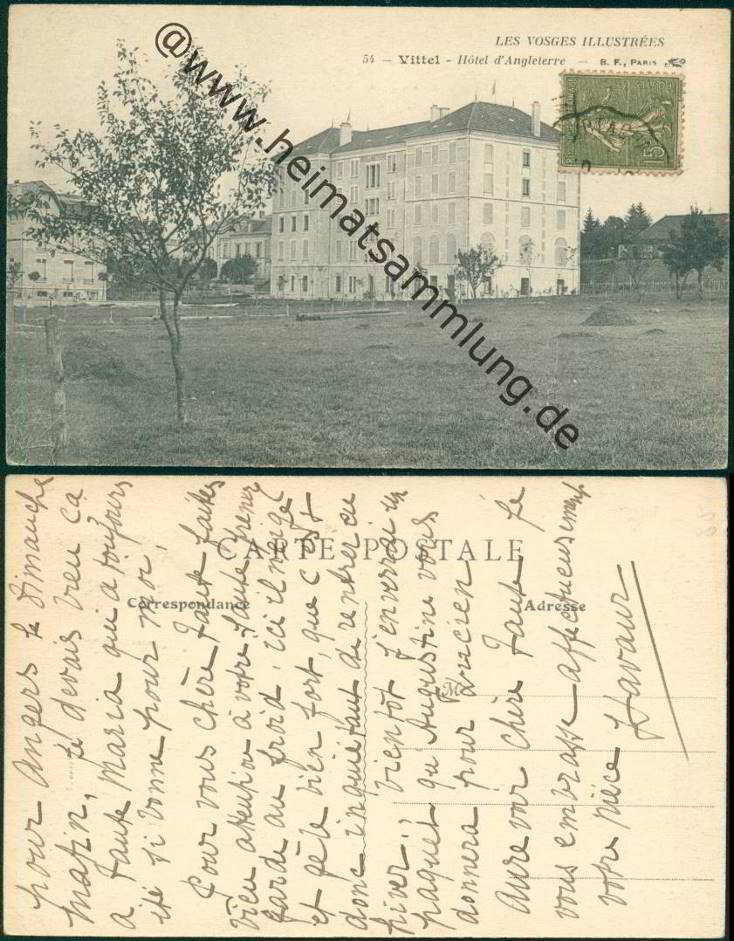 LES VOSGES ILLUSTRÉES
54 — Vittel - Hôtel d'Angleterre — B. F., PARIS
@www.heimatsammlung.de
CARTE POSTALE
Correspondance
Adresse
M
pour Angers le Dimanche
matin, je devais bien ça
a Tante Maria qui a toujours
été si bonne pour moi.
Pour vous chère Tante faites
bien attention à votre santé prenez
garde au froid, ici il neige
et gèle bien fort, que c'est
donc inquiétant de rentrer en
hiver., bientôt j'enverrai un
paquet qu'Augustine vous
donnera pour Lucien.
Aurevoir chère Tante je
vous embrasse affectueusement
votre nièce